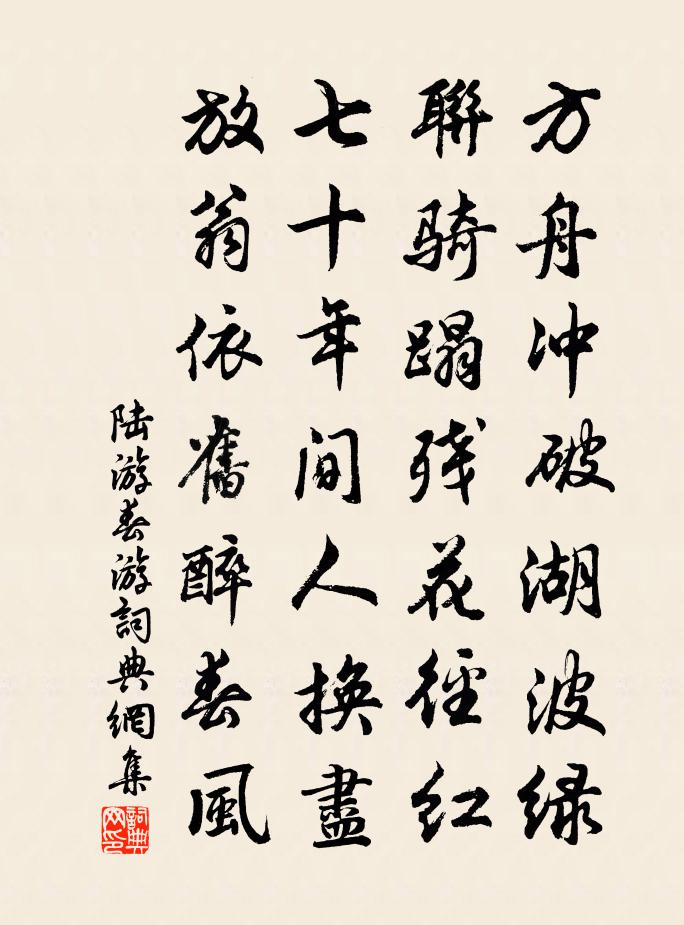 方舟冲破湖波绿
聯騎蹋残花徑红
七十年間人換盡
放翁依舊醉春風
陆游春游詞典網集
詞典网印